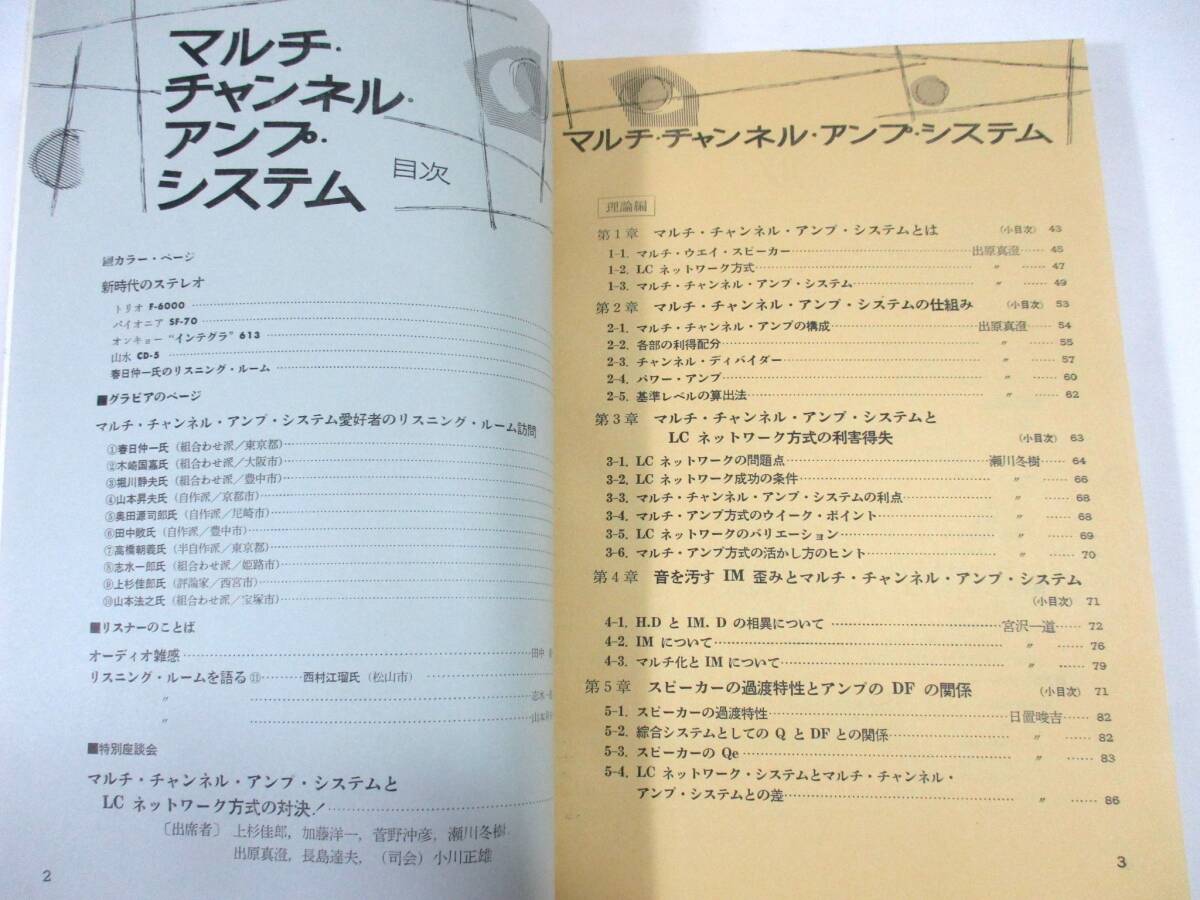 マルチ・
チャンネル・
アンプ・
システム 目次
カラー・ページ
新時代のステレオ
トリオ F-6000
パイオニア SF-70
オンキョー “インテグラ” 613
山水 CD-5
春日仲一氏のリスニング・ルーム
■グラビアのページ
マルチ・チャンネル・アンプ・システム愛好者のリスニング・ルーム訪問
①春日仲一氏(組合わせ派/東京都)
②木崎国嘉氏(組合わせ派/大阪市)
③堀川静夫氏(組合わせ派/豊中市)
④山本昇夫氏(自作派/京都市)
⑤奥田源司郎氏(自作派/尼崎市)
⑥田中敞氏(自作派/豊中市)
⑦高橋朝義氏(半自作派/東京都)
⑧志水一郎氏(組合わせ派/姫路市)
⑨上杉佳郎氏(評論家/西宮市)
⑩山本法之氏(組合わせ派/宝塚市)
■リスナーのことば
オーディオ雑感 田中
リスニング・ルームを語る⑪ 西村江瑠氏(松山市)
〃 志水
〃 山本
■特別座談会
マルチ・チャンネル・アンプ・システムと
LC ネットワーク方式の対決!
〔出席者〕上杉佳郎,加藤洋一,菅野沖彦,瀬川冬樹
出原真澄,長島達夫,(司会)小川正雄
2
マルチ・チャンネル・アンプ・システム
理論編
第1章 マルチ・チャンネル・アンプ・システムとは (小目次) 43
1-1. マルチ・ウエイ・スピーカー 出原真澄 45
1-2. LC ネットワーク方式 〃 47
1-3. マルチ・チャンネル・アンプ・システム 〃 49
第2章 マルチ・チャンネル・アンプ・システムの仕組み (小目次) 53
2-1. マルチ・チャンネル・アンプの構成 出原真澄 54
2-2. 各部の利得配分 〃 55
2-3. チャンネル・ディバイダー 〃 57
2-4. パワー・アンプ 〃 60
2-5. 基準レベルの算出法 〃 62
第3章 マルチ・チャンネル・アンプ・システムと
LC ネットワーク方式の利害得失 (小目次) 63
3-1. LC ネットワークの問題点 瀬川冬樹 64
3-2. LC ネットワーク成功の条件 〃 66
3-3. マルチ・チャンネル・アンプ・システムの利点 〃 68
3-4. マルチ・アンプ方式のウイーク・ポイント 〃 68
3-5. LC ネットワークのバリエーション 〃 69
3-6. マルチ・アンプ方式の活かし方のヒント 〃 70
第4章 音を汚す IM 歪みとマルチ・チャンネル・アンプ・システム
(小目次) 71
4-1. H.D と IM. D の相異について 宮沢一道 72
4-2. IM について 〃 76
4-3. マルチ化と IM について 〃 79
第5章 スピーカーの過渡特性とアンプの DF の関係 (小目次) 71
5-1. スピーカーの過渡特性 日置唆吉 82
5-2. 綜合システムとしての Q と DF との関係 〃 82
5-3. スピーカーの Qe 〃 83
5-4. LC ネットワーク・システムとマルチ・チャンネル・
アンプ・システムとの差 〃 86
3